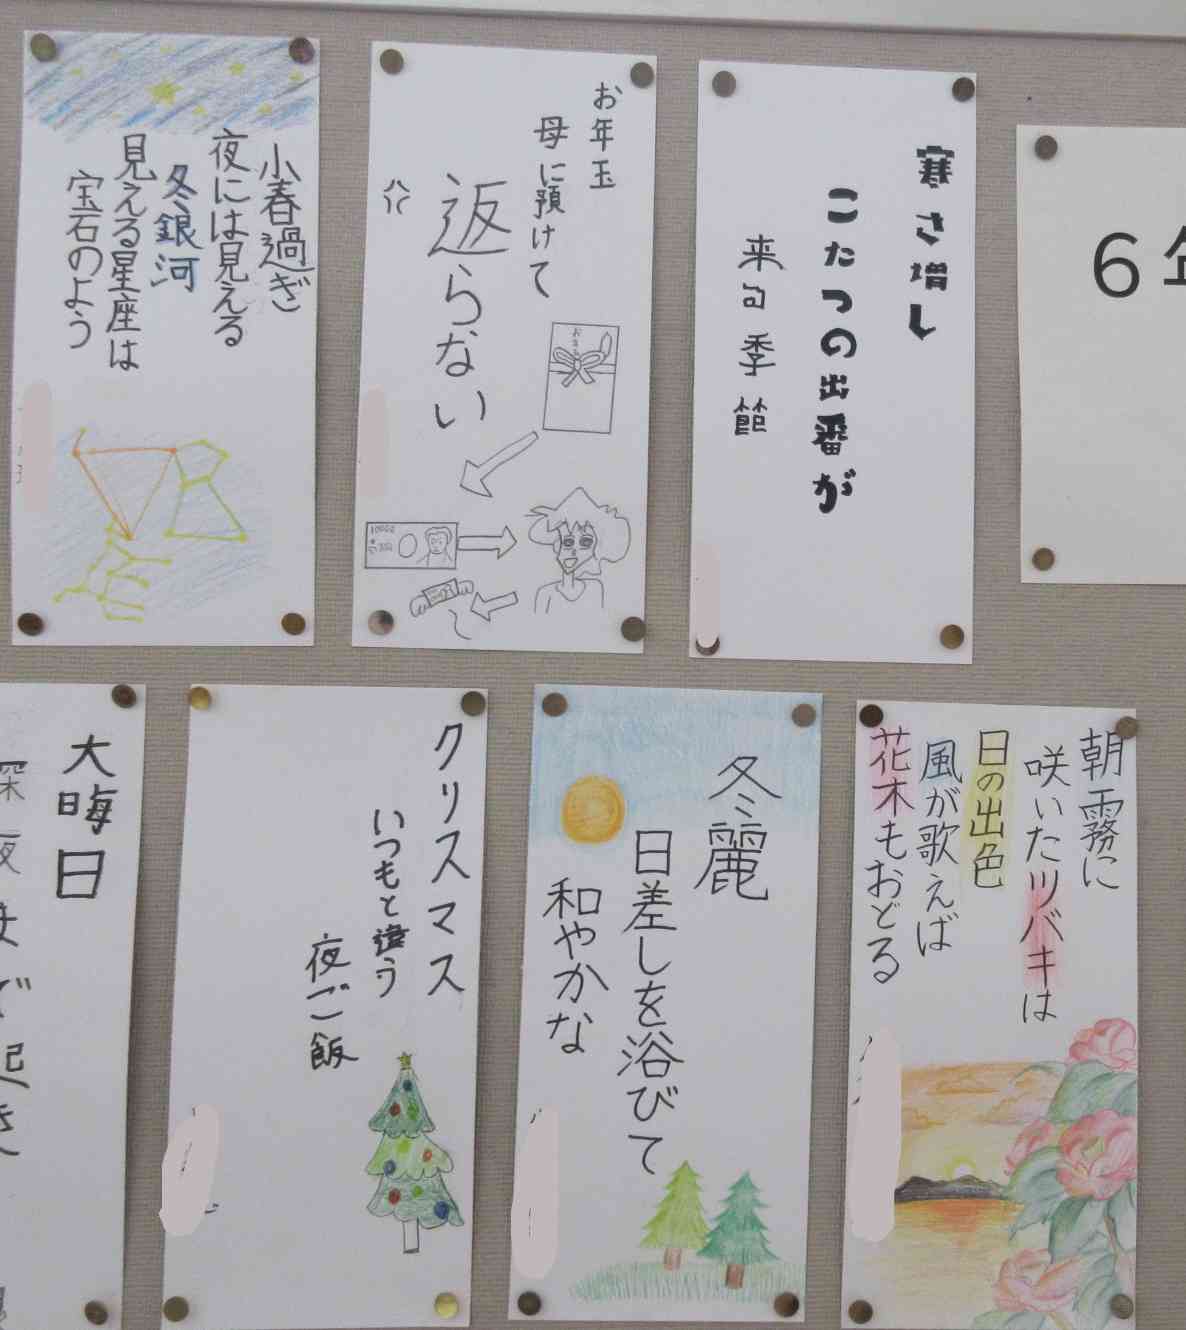 寒さ増し
こたつの出番が
来る季節
お年玉
母に預けて
返らない
小春過ぎ
夜には見える
冬銀河
見える星座は
宝石のよう
6年
朝霧に
咲いたツバキは
日の出色
風が歌えば
花木もおどる
冬麗
日差しを浴びて
和やかな
クリスマス
いつもと違う
夜ご飯
大晦日
深夜まで起き